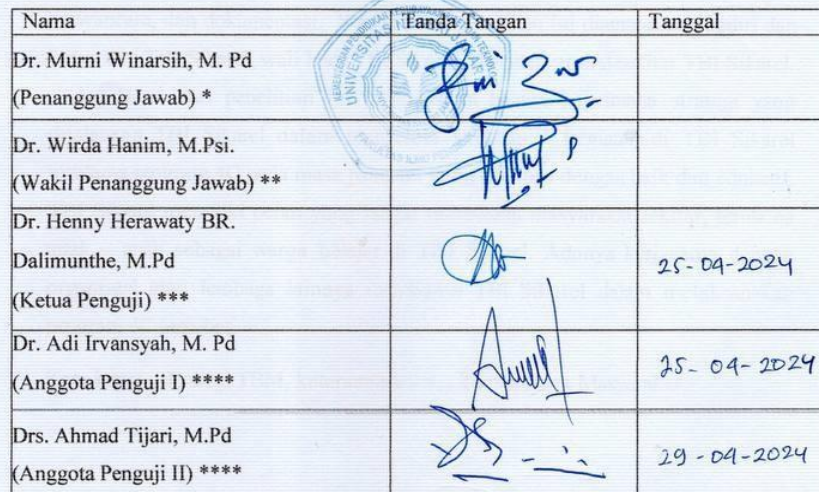 Nama Tanda Tangan Tanggal
Dr. Murni Winarsih, M. Pd
(Penanggung Jawab) *
Dr. Wirda Hanim, M.Psi.
(Wakil Penanggung Jawab) **
Dr. Henny Herawaty BR.
Dalimunthe, M.Pd
(Ketua Penguji) ***
25-04-2024
Dr. Adi Irvansyah, M. Pd
(Anggota Penguji I) ****
25-04-2024
Drs. Ahmad Tijari, M.Pd
(Anggota Penguji II) ****
29-04-2024
UNIVERSITAS NEGERI JAKARTA